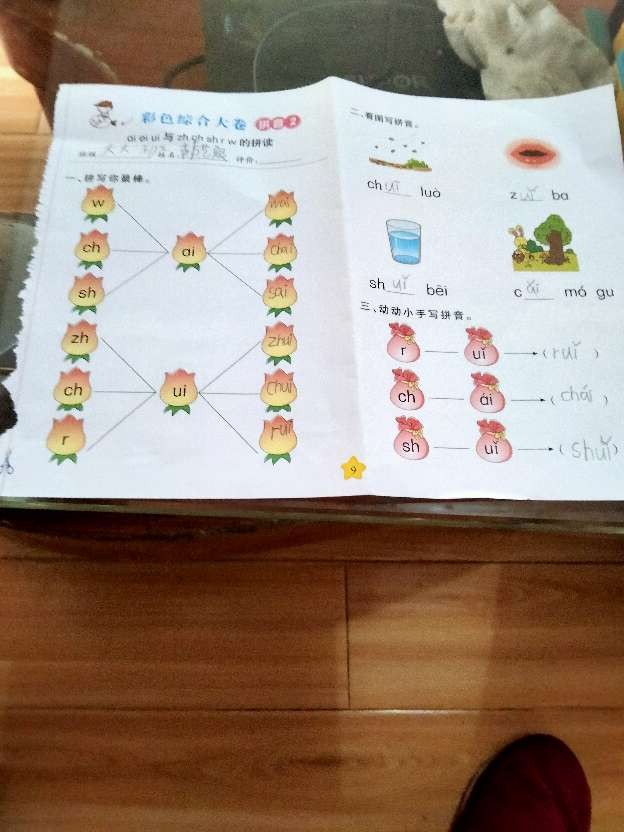 彩色综合大卷 拼音2
ai ei ui 与 zh ch sh r w 的拼读
班级 大大 姓名: 评价:
一、拼写你最棒。
w
ch ai
sh
wai
chai
sai
zh
ch ui
r
zhui
chui
rui
二、看图写拼音。
ch uī luò z uǐ ba
sh uǐ bēi c ǎi mó gu
三、动动小手写拼音。
r uǐ (ruǐ)
ch ái (chái)
sh uǐ (shuǐ)
9